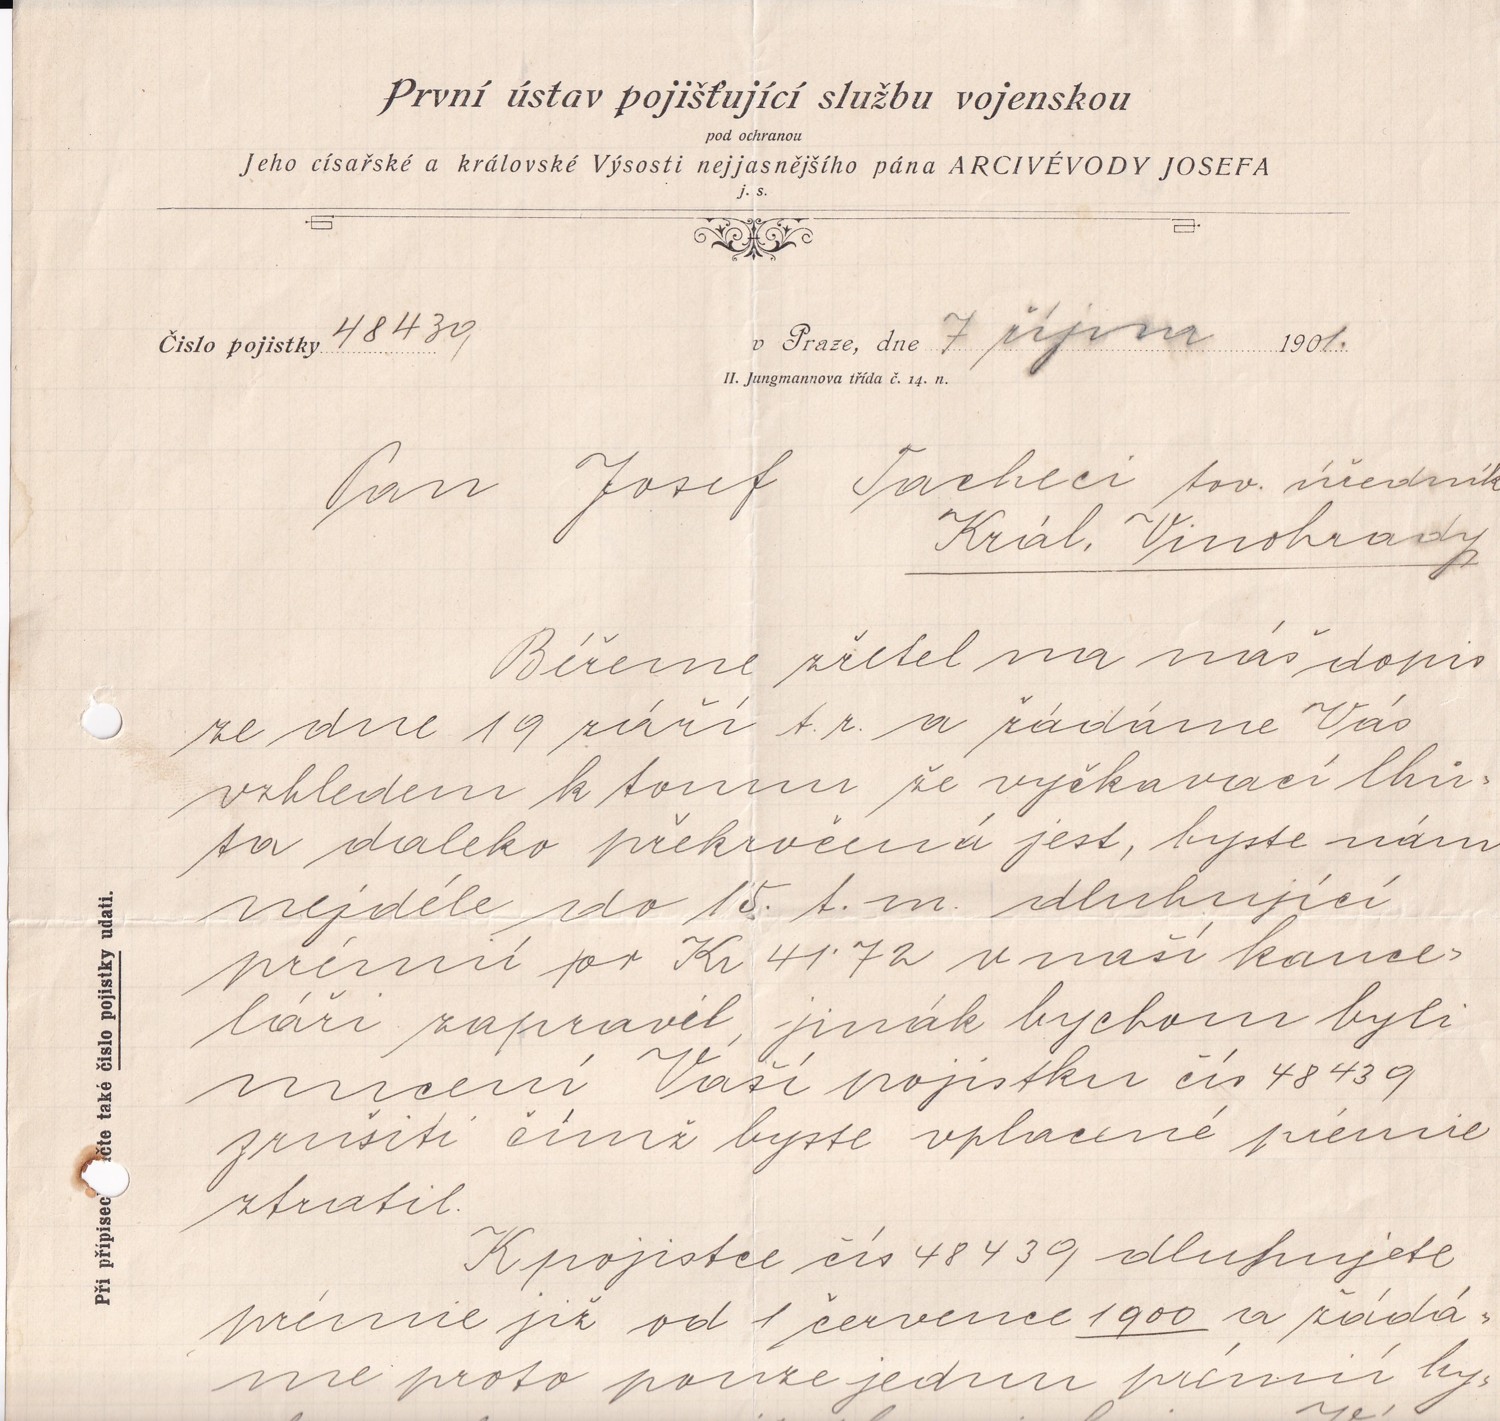 První ústav pojišťující službu vojenskou
pod ochranou
Jeho císařské a královské Výsosti nejjasnějšího pána ARCIVÉVODY JOSEFA
j. s.
Čislo pojistky 48439
v Praze, dne 7 října 1901.
II. Jungmannova třída č. 14. n.
Pan Josef Tacheci tov. úředník
Král. Vinohrady
Béřeme zřetel na náš dopis
ze dne 19 září t.r. a žádáme Vás
vzhledem k tomu že vyčkavací lhů-
ta daleko překročená jest, byste nám
nejdéle do 15. t. m. dluhující
prémii po Kr 41·72 v naší kance-
láři zapravil, jinák bychom byli
nuceni Vaší pojistku čís 48439
zrušiti čímž byste vplacené prémie
ztratil.
K pojistce čís 48439 dluhujete
prémie již od 1 července 1900 a žádá-
me proto pouze jednu prémii by-
Při přípisec čte také čislo pojistky udati.